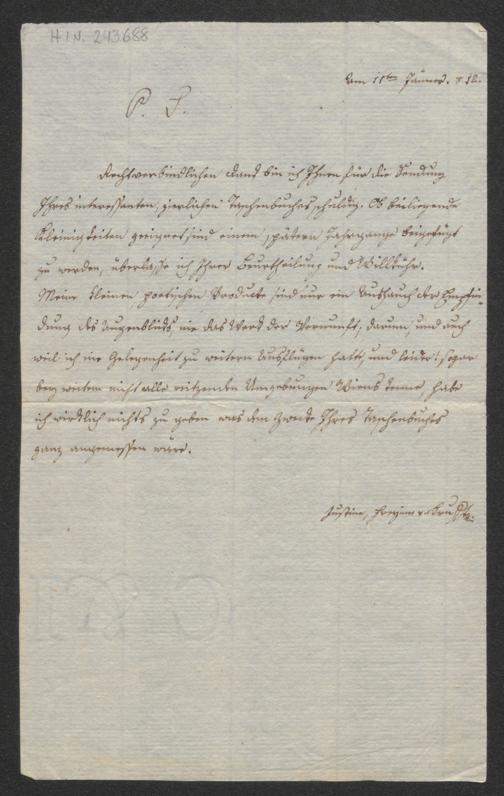 H.I.N. 243688
Am 11ten Jänner. 812.
P. T.
Rechtverbindlichen Dank bin ich Ihnen für die Sendung
Ihres interessanten, zierlichen Taschenbuches schuldig. Ob beiliegende
Kleinigkeiten geeignet sind einem spätern Jahrgange beigefügt
zu werden, überlasse ich Ihrer Beurtheilung und Willkühr.
Meine kleinen poetischen Produkte sind nur ein Aushauch der Empfin-
dung des Augenblicks, nie das Werk der Vernunft; darum, und auch
weil ich nie Gelegenheit zu weitern Ausflügen hatte, und leider! sogar
bey weitem nicht alle reitzenden Umgebungen Wiens kenne, habe
ich wirklich nichts zu geben was dem Zwecke Ihres Taschenbuches
ganz angemessen wäre.
Justine, Freyinn v.